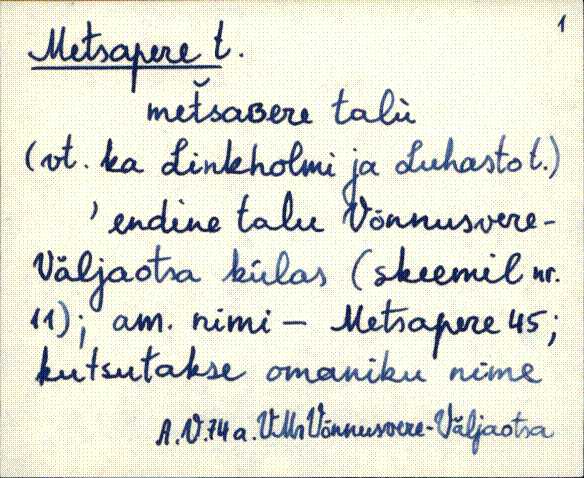 1
Metsapere t.
metšaʙere talù
(vt. ka Linkholmi ja Luhasto t.)
’endine talu Võnnusvere-
Väljaotsa külas (skeemil nr.
11); am. nimi – Metsapere 45;
kutsutakse omaniku nime
A.V. 74 a. VMr Võnnusvere-Väljaotsa